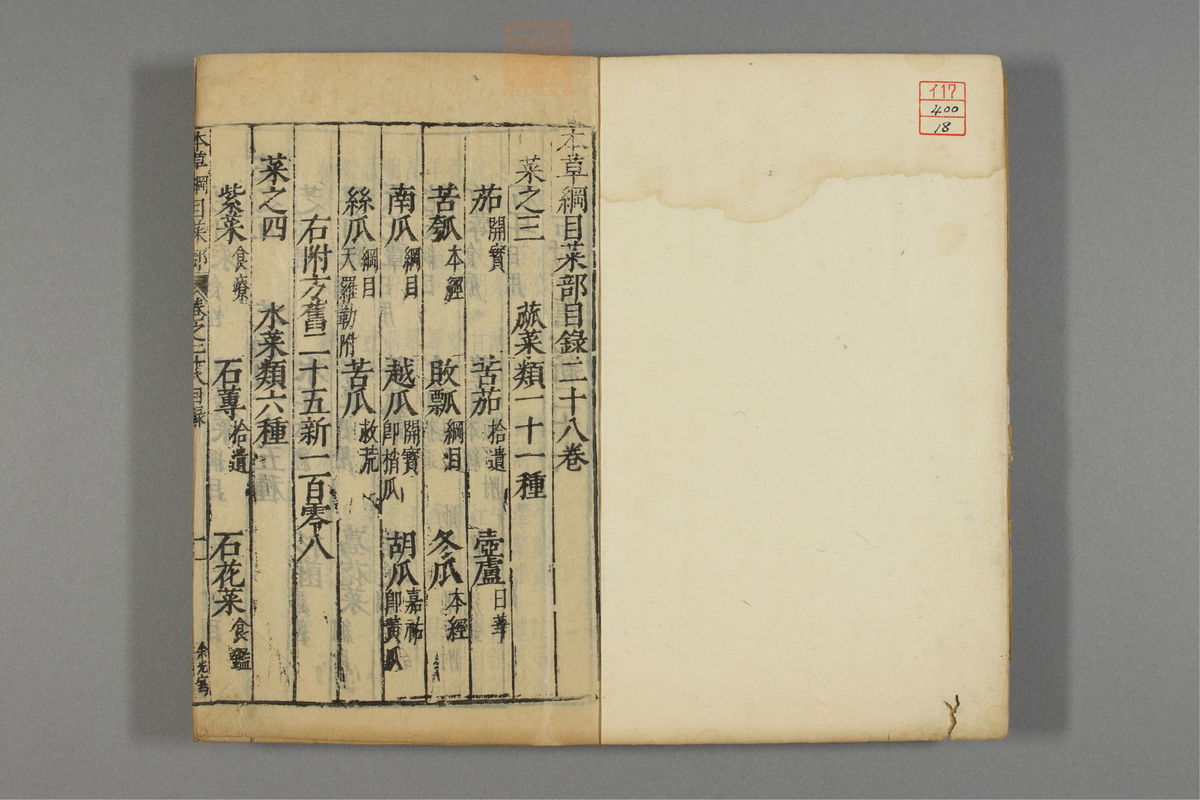 本草綱目菜部目錄二十八卷
菜之三 蓏菜類一十一種
茄開寶 苦茄拾遺 壺盧日華
苦瓠本經 敗瓢綱目 冬瓜本經
南瓜綱目 越瓜開寶即梢瓜 胡瓜嘉祐即黃瓜
絲瓜綱目天羅勒附 苦瓜救荒
右附方舊二十五新一百零八
菜之四 水菜類六種
紫菜食療 石蓴拾遺 石花菜食鑑
本草綱目菜部 卷之二十八目録 一
イ17
400
18